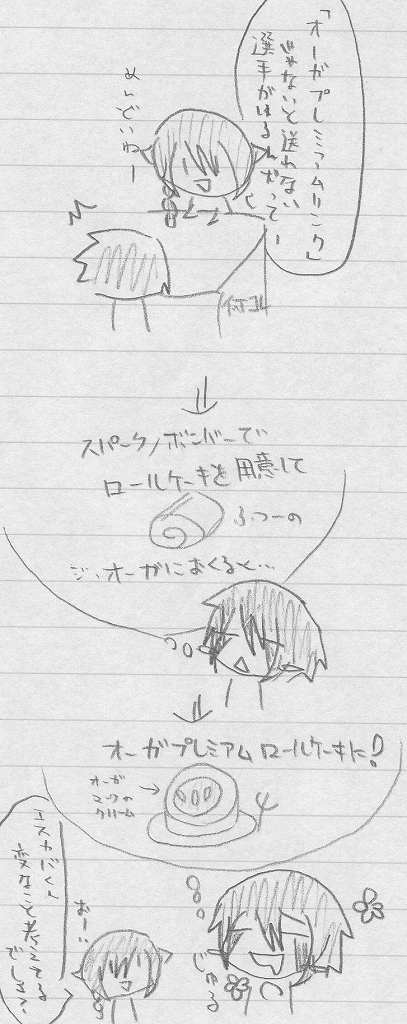 「オーガプレミアムリンク」
じゃないと送れない
選手がいるんだってー
めんどいねー
スパークノボンバーで
ロールケーキを用意して
ふつーの
ジ・オーガにおくると…
オーガプレミアムロールケーキに!
オーガ
マークの
クリーム
じゅる
おーい
変なこと考えてる
でしょ?